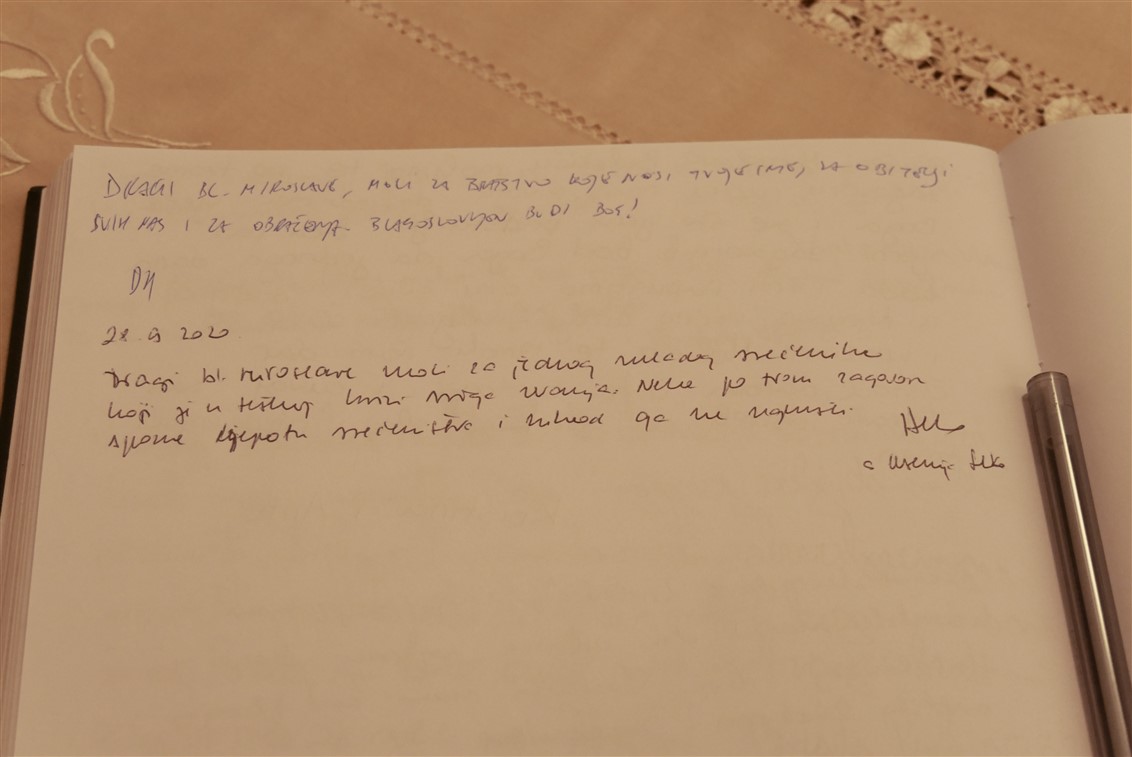 DRAGI BL. MIROSLAVE, MOLI ZA BRATSTVO KOJE NOSI TVOJE IME, ZA OBITELJI
SVIH NAS I ZA OBRAĆENJA. BLAGOSLOVLJEN BUDI BOG!
DH
28. 9 2020.
Dragi bl. Miroslave moli za jednog mladog svećenika
koji je u teškoj krizi svoga zvanja. Neka po tvom zagovoru
spozna ljepotu svećeništva i nikad ga ne napusti.